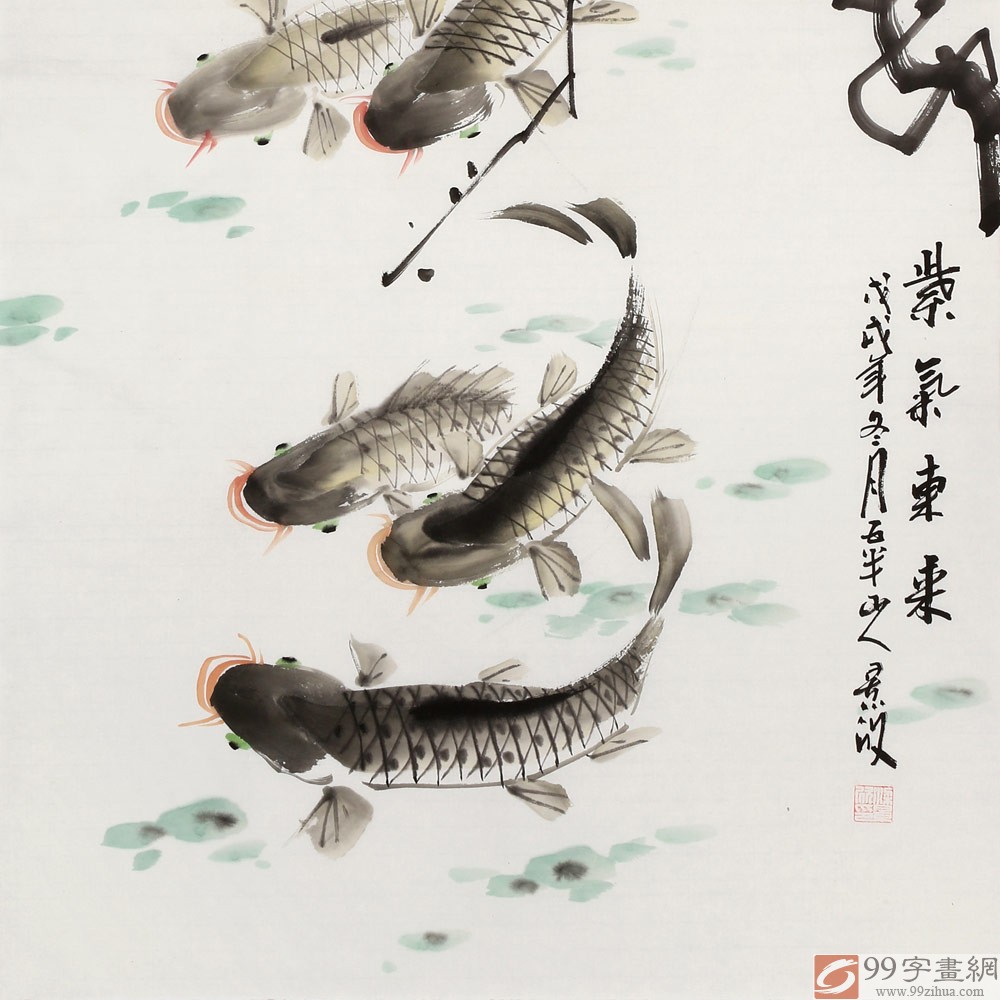 紫氣東來
戊戌年冬月五半山人景波
99字畫網
www.99zihua.com